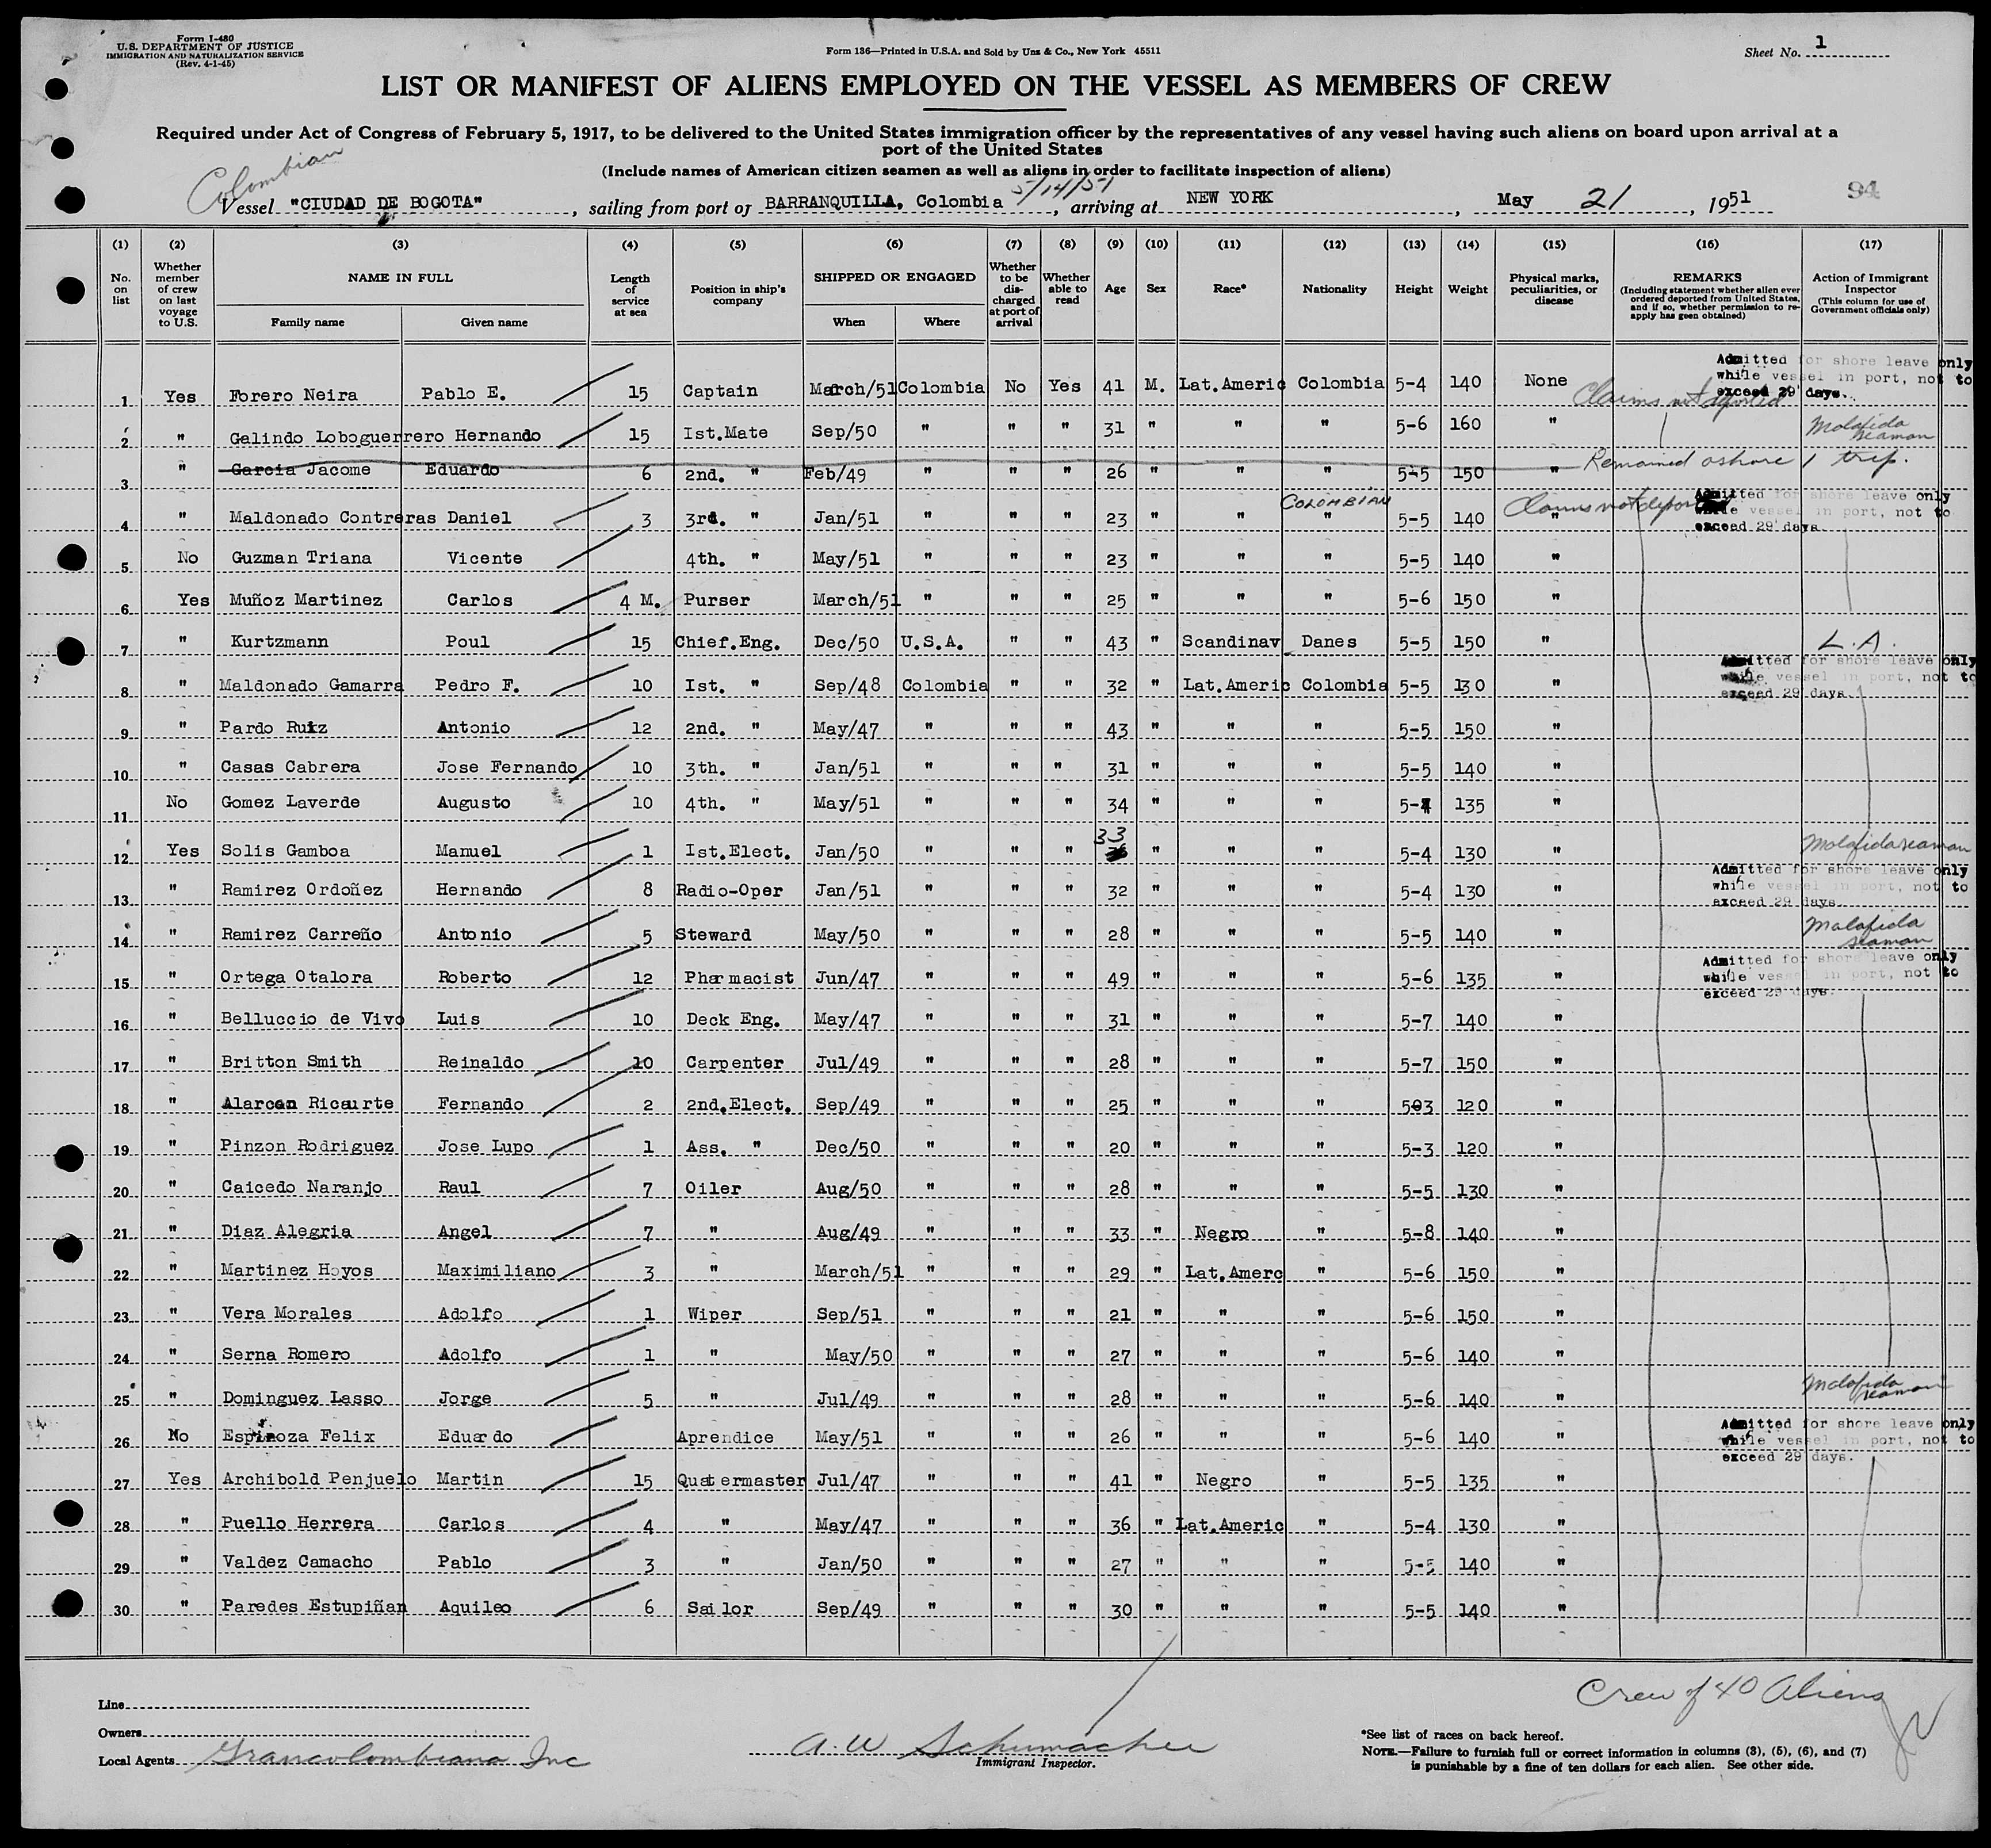 Form I-480
U.S. DEPARTMENT OF JUSTICE
IMMIGRATION AND NATURALIZATION SERVICE
(Rev. 4-1-45)
Form 136—Printed in U.S.A. and Sold by Unz & Co., New York 45511
Sheet No. 1
LIST OR MANIFEST OF ALIENS EMPLOYED ON THE VESSEL AS MEMBERS OF CREW
Required under Act of Congress of February 5, 1917, to be delivered to the United States immigration officer by the representatives of any vessel having such aliens on board upon arrival at a
port of the United States
(Include names of American citizen seamen as well as aliens in order to facilitate inspection of aliens)
Colombian
5/14/51
94
Vessel "CIUDAD DE BOGOTA", sailing from port of BARRANQUILLA, Colombia, arriving at NEW YORK, May 21, 1951
(1) (2) (3) (4) (5) (6) (7) (8) (9) (10) (11) (12) (13) (14) (15) (16) (17)
No. on list
Whether member of crew on last voyage to U.S.
NAME IN FULL
Family name
Given name
Length of service at sea
Position in ship's company
SHIPPED OR ENGAGED
When
Where
Whether to be discharged at port of arrival
Whether able to read
Age
Sex
Race*
Nationality
Height
Weight
Physical marks, peculiarities, or disease
REMARKS
(Including statement whether alien ever ordered deported from United States, and if so, whether permission to re-apply has geen obtained)
Action of Immigrant Inspector
(This column for use of Government officials only)
1 Yes Forero Neira Pablo E. 15 Captain March/51 Colombia No Yes 41 M. Lat.Americ Colombia 5-4 140 None Claims not deported Admitted for shore leave only while vessel in port, not to exceed 29 days.
2 " Galindo Loboguerrero Hernando 15 Ist.Mate Sep/50 " " " 31 " " " 5-6 160 " Malafida seaman
3 " Garcia Jacome Eduardo 6 2nd. " Feb/49 " " " 26 " " " 5-5 150 " Remained ashore 1 trip.
4 " Maldonado Contreras Daniel 3 3rd. " Jan/51 " " " 23 " " COLOMBIAN " 5-5 140 " Claims not deported Admitted for shore leave only while vessel in port, not to exceed 29 days
5 No Guzman Triana Vicente 4th. " May/51 " " " 23 " " " 5-5 140 "
6 Yes Muñoz Martinez Carlos 4 M. Purser March/51 " " " 25 " " " 5-6 150 "
7 " Kurtzmann Poul 15 Chief.Eng. Dec/50 U.S.A. " " 43 " Scandinav Danes 5-5 150 " L.A.
8 " Maldonado Gamarra Pedro F. 10 Ist. " Sep/48 Colombia " " 32 " Lat.Americ Colombia 5-5 130 " Admitted for shore leave only while vessel in port, not to exceed 29 days.
9 " Pardo Ruiz Antonio 12 2nd. " May/47 " " " 43 " " " 5-5 150 "
10 " Casas Cabrera Jose Fernando 10 3th. " Jan/51 " " " 31 " " " 5-5 140 "
11 No Gomez Laverde Augusto 10 4th. " May/51 " " " 34 " " " 5-4 135 "
12 Yes Solis Gamboa Manuel 1 Ist.Elect. Jan/50 " " " 33 " " " 5-4 130 " Malafida seaman
13 " Ramirez Ordoñez Hernando 8 Radio-Oper Jan/51 " " " 32 " " " 5-4 130 " Admitted for shore leave only while vessel in port, not to exceed 29 days.
14 " Ramirez Carreño Antonio 5 Steward May/50 " " " 28 " " " 5-5 140 " Malafida seaman
15 " Ortega Otalora Roberto 12 Pharmacist Jun/47 " " " 49 " " " 5-6 135 " Admitted for shore leave only while vessel in port, not to exceed 29 days.
16 " Belluccio de Vivo Luis 10 Deck Eng. May/47 " " " 31 " " " 5-7 140 "
17 " Britton Smith Reinaldo 10 Carpenter Jul/49 " " " 28 " " " 5-7 150 "
18 " Alarcon Ricaurte Fernando 2 2nd.Elect. Sep/49 " " " 25 " " " 5-3 120 "
19 " Pinzon Rodriguez Jose Lupo 1 Ass. " Dec/50 " " " 20 " " " 5-3 120 "
20 " Caicedo Naranjo Raul 7 Oiler Aug/50 " " " 28 " " " 5-5 130 "
21 " Diaz Alegria Angel 7 " Aug/49 " " " 33 " Negro " 5-8 140 "
22 " Martinez Hoyos Maximiliano 3 " March/51 " " " 29 " Lat.Amerc " 5-6 150 "
23 " Vera Morales Adolfo 1 Wiper Sep/51 " " " 21 " " " 5-6 150 "
24 " Serna Romero Adolfo 1 " May/50 " " " 27 " " " 5-6 140 "
25 " Dominguez Lasso Jorge 5 " Jul/49 " " " 28 " " " 5-6 140 " Malafida seaman
26 No Espinoza Felix Eduardo Aprendice May/51 " " " 26 " " " 5-6 140 " Admitted for shore leave only while vessel in port, not to exceed 29 days.
27 Yes Archibold Penjuelo Martin 15 Quatermaster Jul/47 " " " 41 " Negro " 5-5 135 "
28 " Puello Herrera Carlos 4 " May/47 " " " 36 " Lat.Americ " 5-4 130 "
29 " Valdez Camacho Pablo 3 " Jan/50 " " " 27 " " " 5-5 140 "
30 " Paredes Estupiñan Aquileo 6 Sailor Sep/49 " " " 30 " " " 5-5 140 "
Crew of 40 Aliens
Line
Owners
Local Agents Grancolombiana Inc
A. W Schumacher
Immigrant Inspector.
*See list of races on back hereof.
NOTE.—Failure to furnish full or correct information in columns (3), (5), (6), and (7)
is punishable by a fine of ten dollars for each alien. See other side.